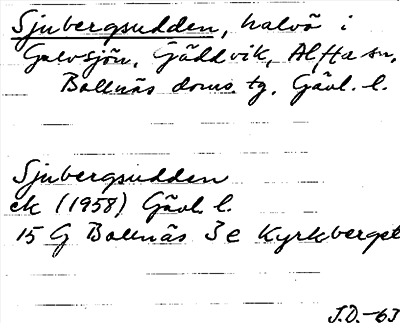 Sjubergsudden, halvö i
Galvsjön, Gäddvik, Alfta sn,
Bollnäs doms. tg. Gävl. l.
Sjubergsudden
ek (1958) Gävl. l.
15 G Bollnäs 3 e Kyrkberget
J.D.-63